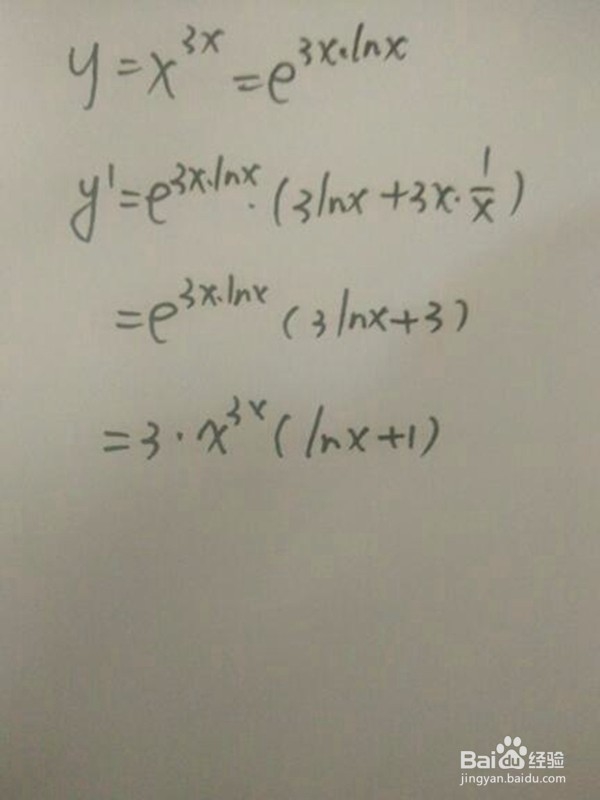 y = x^{3x} = e^{3x·lnx}
y' = e^{3x·lnx}·(3lnx + 3x·\frac{1}{x})
= e^{3x·lnx} (3lnx + 3)
= 3·x^{3x} (lnx + 1)
Baidu经验
jingyan.baidu.com